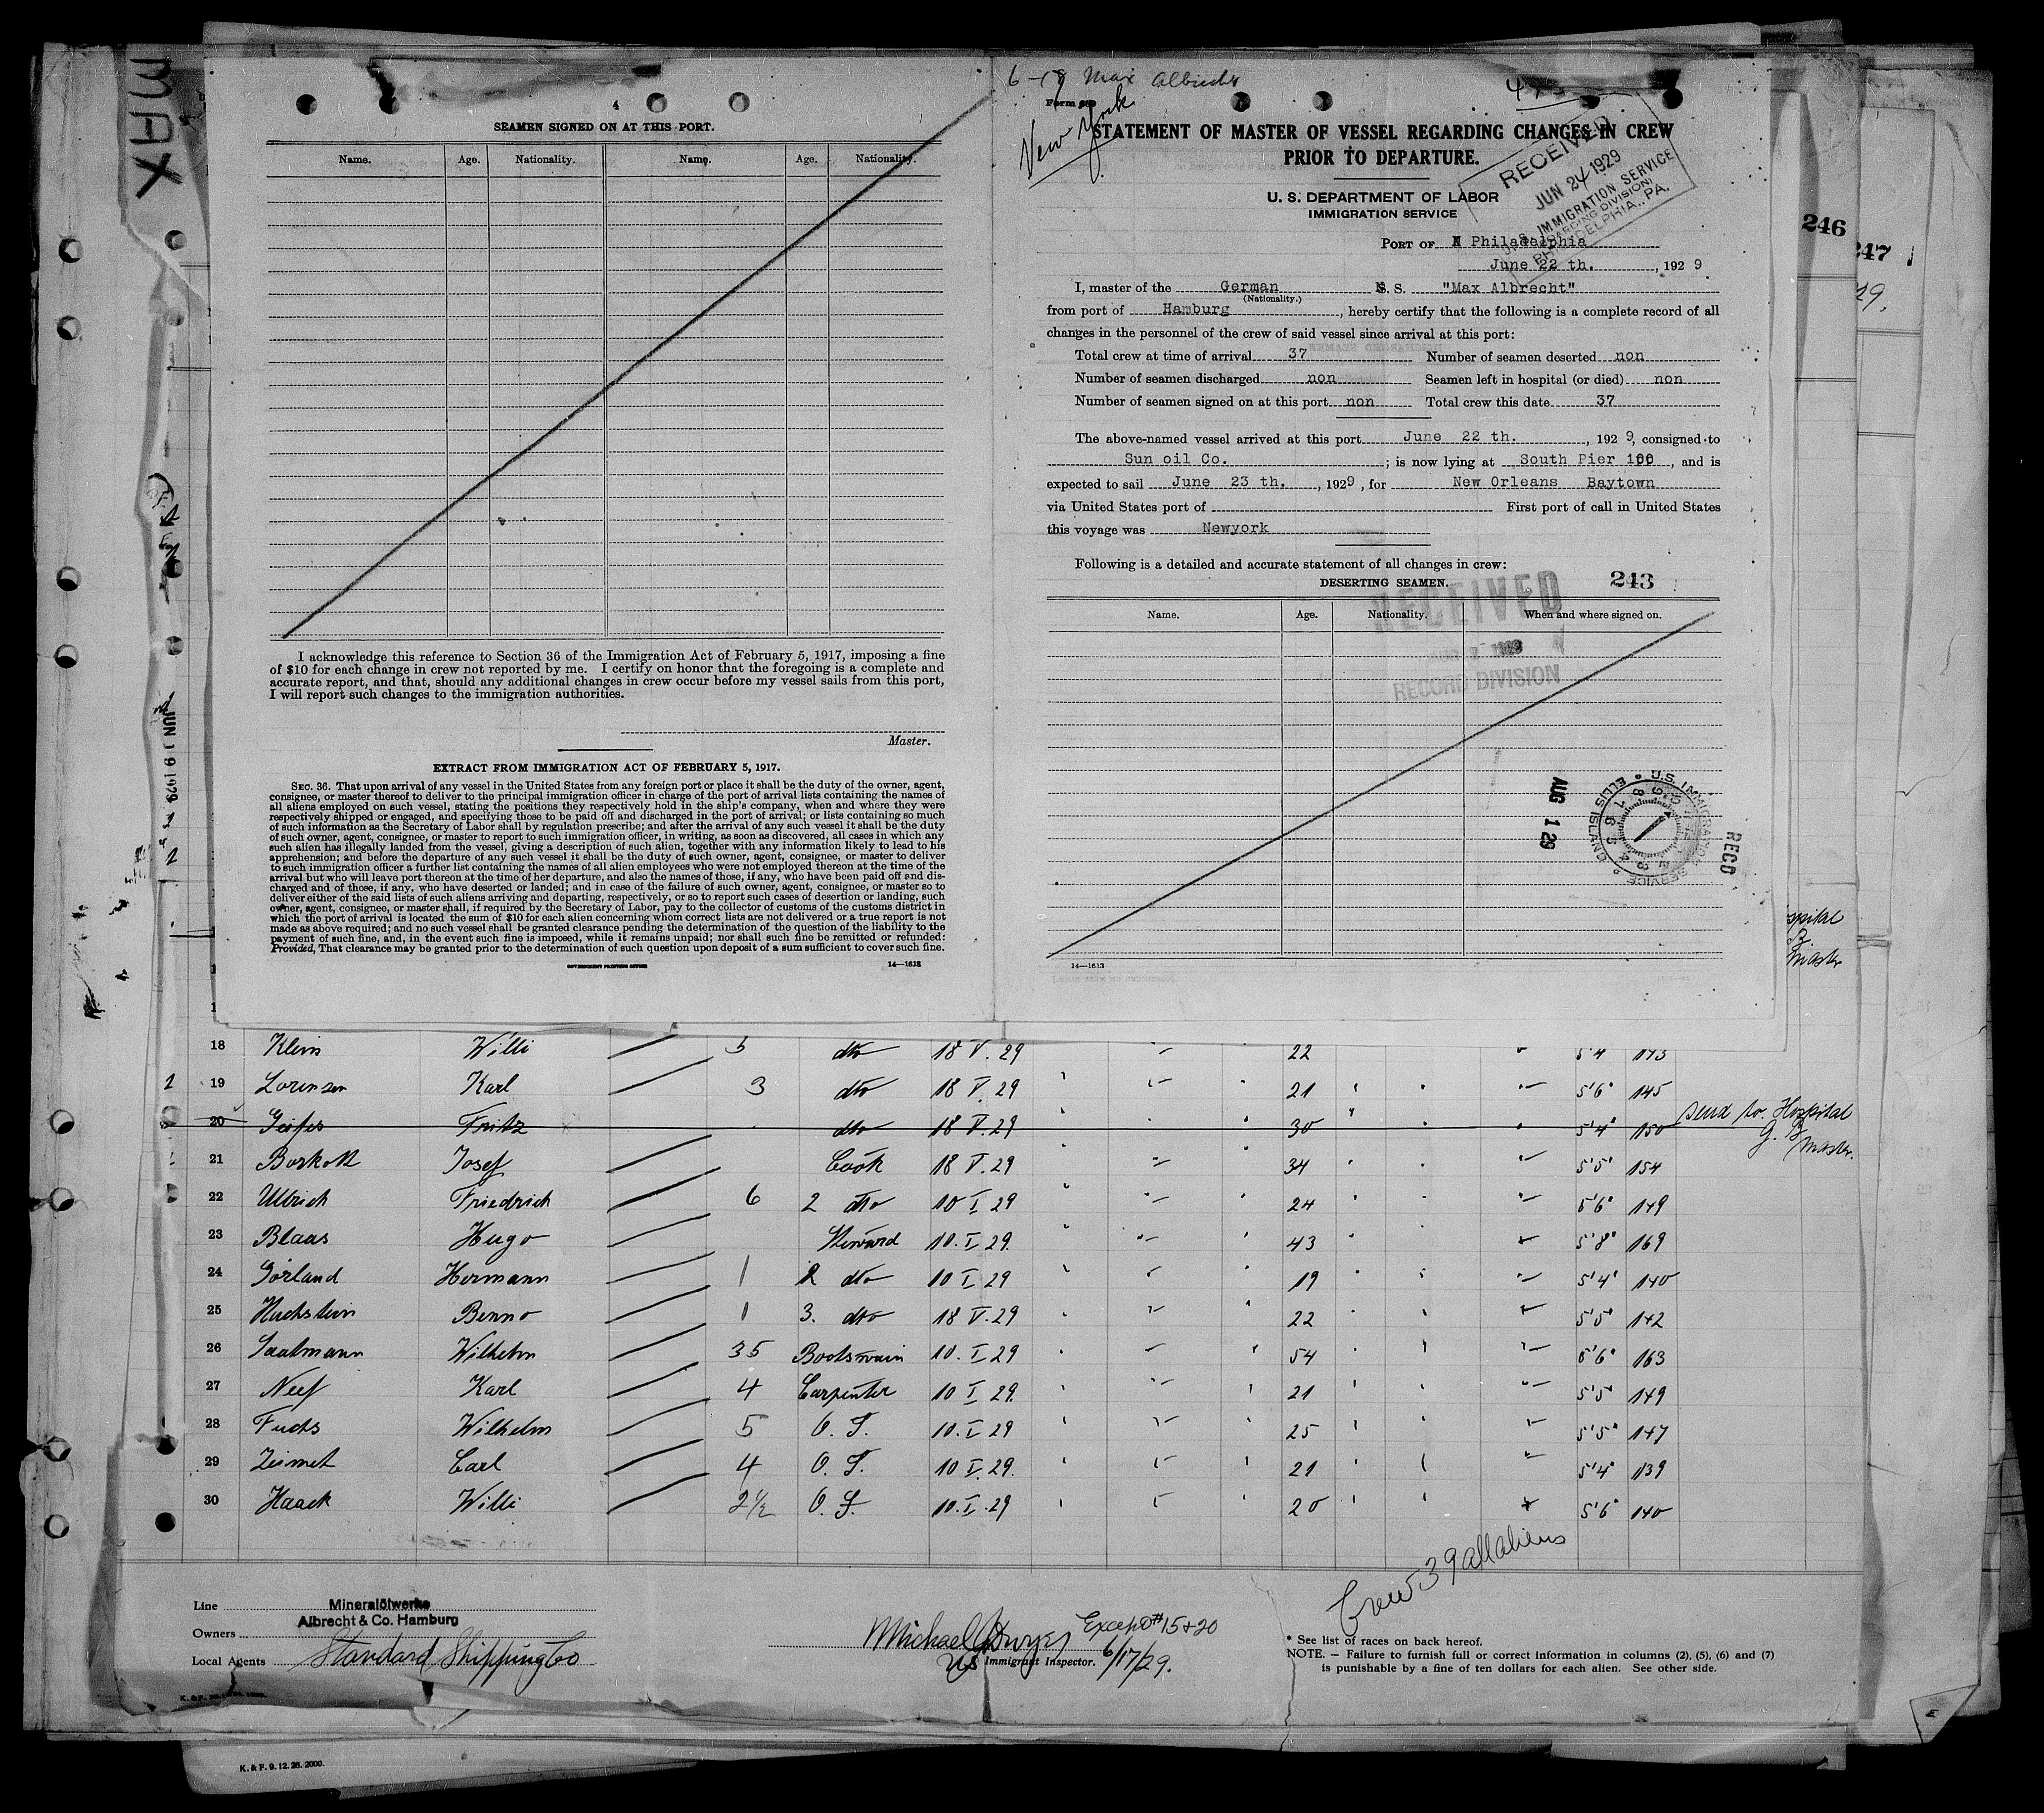 MAX
4
SEAMEN SIGNED ON AT THIS PORT.
Name. Age. Nationality. Name. Age. Nationality.
I acknowledge this reference to Section 36 of the Immigration Act of February 5, 1917, imposing a fine
of $10 for each change in crew not reported by me. I certify on honor that the foregoing is a complete and
accurate report, and that, should any additional changes in crew occur before my vessel sails from this port,
I will report such changes to the immigration authorities.
Master.
EXTRACT FROM IMMIGRATION ACT OF FEBRUARY 5, 1917.
SEC. 36. That upon arrival of any vessel in the United States from any foreign port or place it shall be the duty of the owner, agent,
consignee, or master thereof to deliver to the principal immigration officer in charge of the port of arrival lists containing the names of
all aliens employed on such vessel, stating the positions they respectively hold in the ship's company, when and where they were
respectively shipped or engaged, and specifying those to be paid off and discharged in the port of arrival; or lists containing so much
of such information as the Secretary of Labor shall by regulation prescribe; and after the arrival of any such vessel it shall be the duty
of such owner, agent, consignee, or master to report to such immigration officer, in writing, as soon as discovered, all cases in which any
such alien has illegally landed from the vessel, giving a description of such alien, together with any information likely to lead to his
apprehension; and before the departure of any such vessel it shall be the duty of such owner, agent, consignee, or master to deliver
to such immigration officer a further list containing the names of all alien employees who were not employed thereon at the time of the
arrival but who will leave port thereon at the time of her departure, and also the names of those, if any, who have been paid off and dis-
charged and of those, if any, who have deserted or landed; and in case of the failure of such owner, agent, consignee, or master so to
deliver either of the said lists of such aliens arriving and departing, respectively, or so to report such cases of desertion or landing, such
owner, agent, consignee, or master shall, if required by the Secretary of Labor, pay to the collector of customs of the customs district in
which the port of arrival is located the sum of $10 for each alien concerning whom correct lists are not delivered or a true report is not
made as above required; and no such vessel shall be granted clearance pending the determination of the question of the liability to the
payment of such fine, and, in the event such fine is imposed, while it remains unpaid; nor shall such fine be remitted or refunded:
Provided, That clearance may be granted prior to the determination of such question upon deposit of a sum sufficient to cover such fine.
GOVERNMENT PRINTING OFFICE 14—1613
Max Albrecht
Form
New York
STATEMENT OF MASTER OF VESSEL REGARDING CHANGES IN CREW
PRIOR TO DEPARTURE.
RECEIVED
JUN 24 1929
U. S. IMMIGRATION SERVICE
(BOARDING DIVISION)
PHILADELPHIA, PA.
U. S. DEPARTMENT OF LABOR
IMMIGRATION SERVICE
PORT OF Philadelphia
June 22 th., 1929
I, master of the German S. S. "Max Albrecht"
(Nationality.)
from port of Hamburg, hereby certify that the following is a complete record of all
changes in the personnel of the crew of said vessel since arrival at this port:
Total crew at time of arrival 37 Number of seamen deserted non
Number of seamen discharged non Seamen left in hospital (or died) non
Number of seamen signed on at this port non Total crew this date 37
The above-named vessel arrived at this port June 22 th., 1929, consigned to
Sun oil Co.; is now lying at South Pier 100, and is
expected to sail June 23 th., 1929, for New Orleans Baytown
via United States port of First port of call in United States
this voyage was Newyork
Following is a detailed and accurate statement of all changes in crew:
DESERTING SEAMEN. 243
Name. Age. Nationality. When and where signed on.
RECEIVED
RECORD DIVISION
AUG 1 29
U.S. IMMIGRATION SERVICE ELLIS ISLAND
RECD
14—1613
246
247
29.
JUN 19 1929
Hospital
Master
18 Klein Willi 5 dto 18 V. 29 22 5'4" 143
19 Lorenzen Karl 3 dto 18 V. 29 21 5'6" 145
20 Fritz dto 18 V. 29 30 5'4" 150 send to Hospital
G. B
Master.
21 Borkott Josef Cook 18 V. 29 34 5'5" 154
22 Ullrich Friedrich 6 2 dto 10 I. 29 24 5'6" 149
23 Blaas Hugo Steward 10. I. 29. 43 5'8" 169
24 Görland Hermann 1 2 dto 10 I. 29 19 5'4" 140
25 Huchstein Benno 1 3. dto 18 V. 29 22 5'5" 142
26 Saalmann Wilhelm 35 Bootswain 10. I. 29 54 5'6" 163
27 Neef Karl 4 Carpenter 10 I. 29. 21 5'5" 149
28 Fuchs Wilhelm 5 O. S. 10. I. 29 25 5'5" 147
29 Ziemet Carl 4 O. S. 10 I. 29. 21 5'4" 139
30 Haack Willi 2 1/2 O. S. 10. I. 29 20 5'6" 140
Crew 39 all aliens
Line Mineralölwerke
Albrecht & Co. Hamburg
Owners
Local Agents Standard Shipping Co
Michael Dwyer Except #15+20
US Immigrant Inspector. 6/17/29.
* See list of races on back hereof.
NOTE. – Failure to furnish full or correct information in columns (2), (5), (6) and (7)
is punishable by a fine of ten dollars for each alien. See other side.
K. & F. 9. 12. 28. 2000.